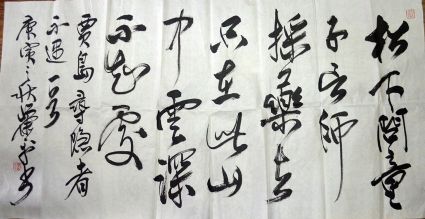 松下問童
子言師
採藥去
只在此山
中雲深
不知處
賈島尋隐者
不遇
庚寅之秋